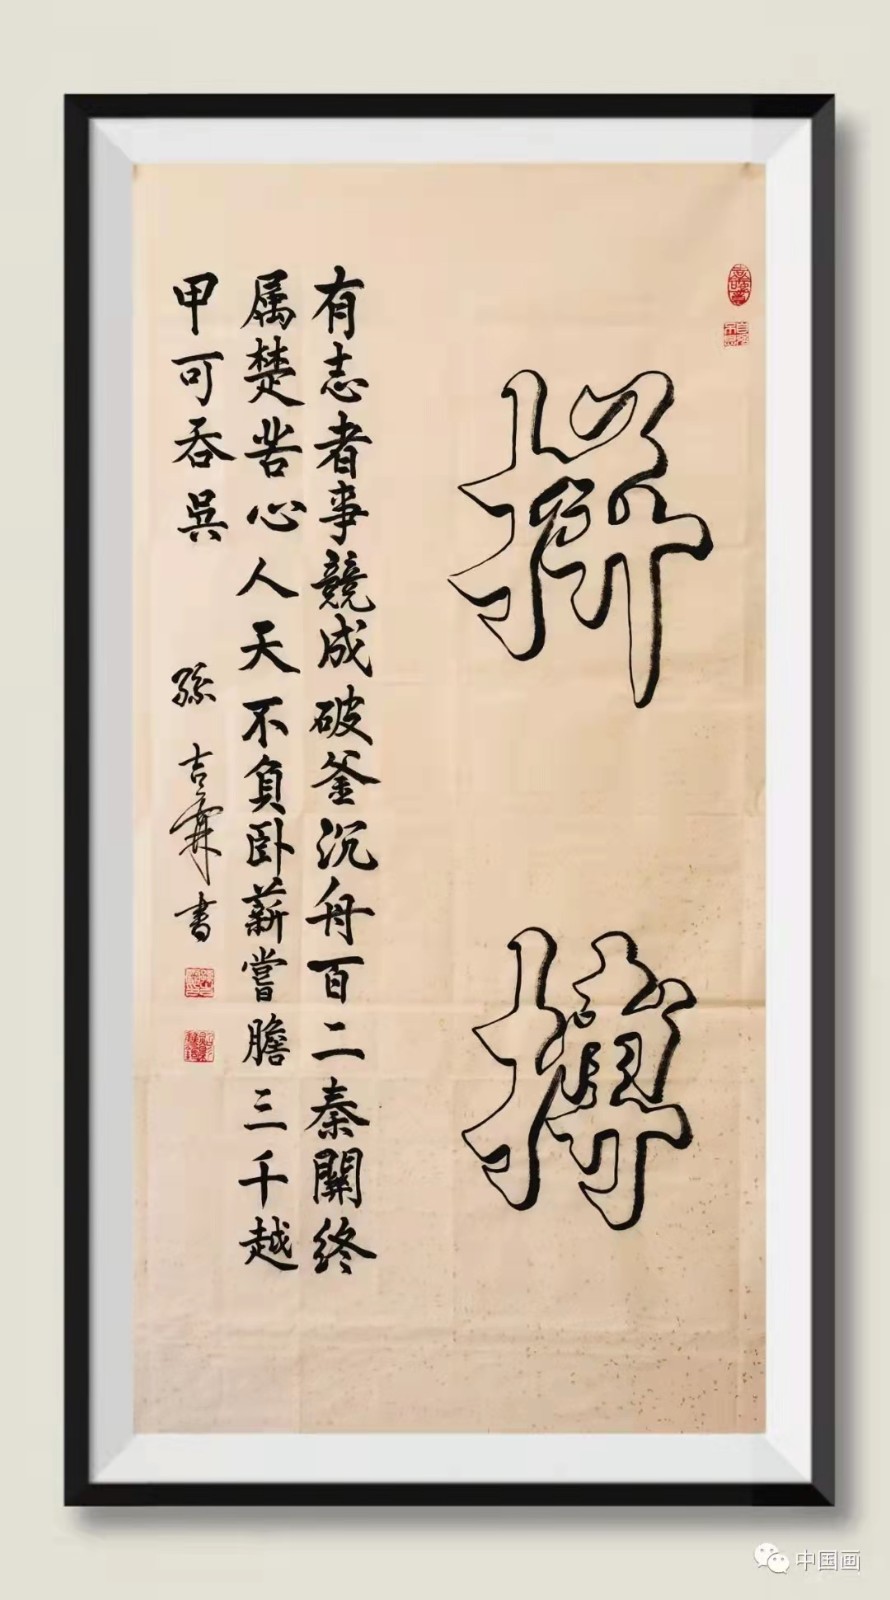 拼搏
有志者事競成破釜沉舟百二秦關终
属楚苦心人天不負卧薪嘗膽三千越
甲可吞吳
孫吉霖书
中国画